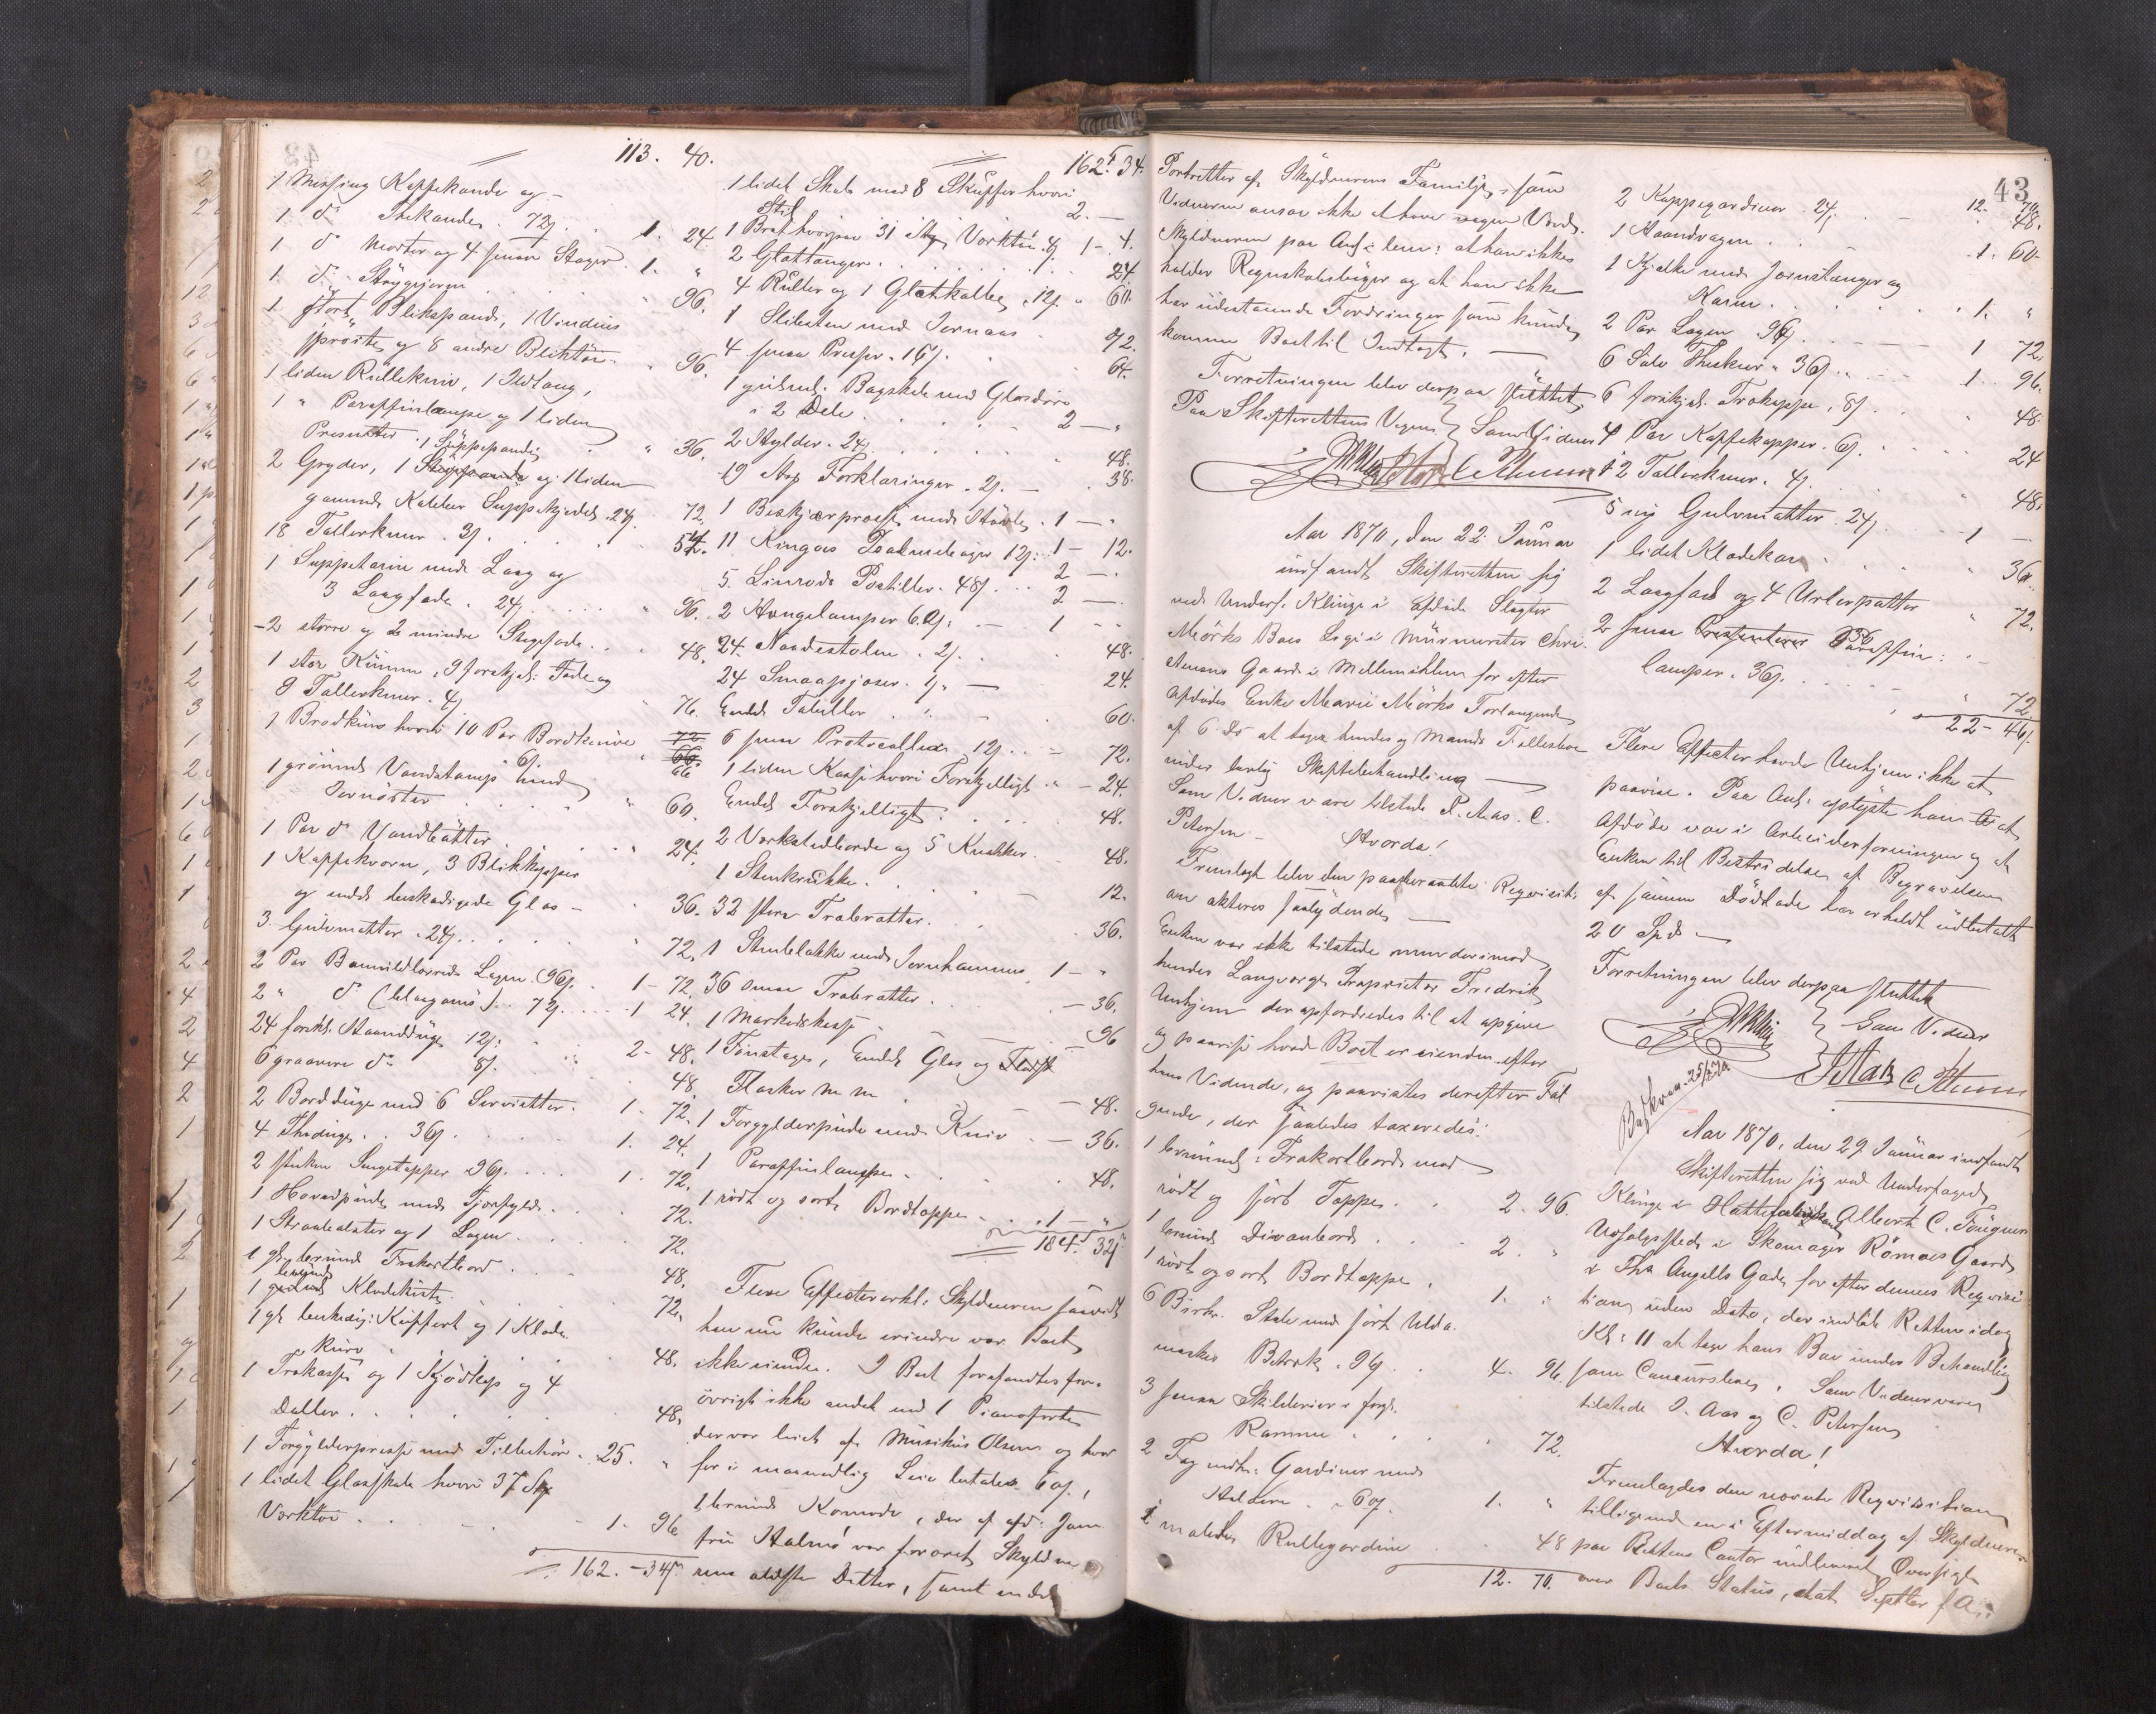 113. 40.
1 Messing Kaffekande og
1. do Thekande. 72ß 1. 24.
1 do Morter og 4 smaa Stager 1. "
1. do Strygejern " 96.
1 stort Blikspand, 1 Vindus
sprøite og 8 andre Bliktøi " 96.
1 liden Rullekniv, 1 Ildtang,
1 " Paraffinlampe og 1 liden
Presenter " 36.
1 Suppepande
2 Gryder, og 1 liden
gammel Kobber Suppekjedel 24ß 72.
18 Tallerkner. 3ß 54.
1 Suppeterin med Laag og
3 Laagfade. 24ß " 96.
2 større og 2 mindre Stegefade 48.
1 stor Kumme, 9 forskjel: Fade og
9 Tallerkner. 4ß 76.
1 Brødkurv hvori 10 Par Bordknive
6ß 66
1 grønmal Vandstamp med
60.
1 Par do Vandbøtter 24.
1 Kaffekvern, 3 Blikkopper
og endel beskadigede Glas 36.
3 Gulvmatter. 24ß 72.
2 Par Bomuldslærreds Lagen 96ß 1 - 72.
2 " do 72ß 1 24.
24 forskl. Haanddug 12ß 2 - 48.
6 graavere do 8ß 48.
2 Bordduge med 6 Servietter 1 - 72.
4 Theduge. 36ß 1. 24.
2 Sengetepper 96ß 1. 72.
1 Hovedpude med Fjærfyld 72.
1 Straamadrats og 1 Lagen 72.
1 gl. brund Frokostbord 48.
brund
1 Klædekiste 72.
1 gl. Kuffert og 1 Klæde
kurv 48.
1 Trækasse og 1 Kjødkop og 4
Daller 48.
1 Forgylderpresse med Tilbehør 25. "
1 lidet Glasskab hvori 37 Stk
Værktøi 1. 96.
162. - 34ß
162. 34.
1 lidet Skab med 8 Skuffer hvori
Stil 2. —
1 Bræt hvorpaa 31 Stk Værktøi 4ß 1 - 4.
2 Glattanger 24
4 Ruller og 1 Glatkolbe 12ß " 60.
1 Slibesten med Jernaas 72.
4 smaa Presser. 16ß 64.
1 gulmal. Bogskab med Glasdøre
i 2 Dele 2 — "
2 Hylder. 24ß 48.
19 Stk Forklaringer. 2ß 38.
1 Beskjærpresse med Høvle 1 — "
11 Kingos Psalmebøger 12ß 1 - 12.
5 Linrods Postiller. 48ß 2 —
2 Hængelamper 60ß 1 - "
24 Naadestolen. 2ß 48.
24 24.
Endel Tabeller 60.
6 smaa Protocoller 12ß 72.
1 liden Kasse hvori Forskjelligt 24.
Endel Forskjelligt 48.
2 Værkstedborde og 5 Krakker 48.
1 Stenkrukke 12.
32 store Træbrætter 36.
1 Stenblokke med Jernhammer 1 — "
36 smaa Træbrætter 36.
1 Markedskasse 96
1 Tønstage, Endel Glas og
Flasker m m 48.
1 Forgylderpude med Kniv 36.
1 Paraffinlampe 48.
1 rødt og sort Bordteppe 1 — "
184. 32ß
Flere Effecter erkl: Skyldneren saavidt
han nu kunde erindre var Boet
ikke eiende. I Boet forefandtes for-
øvrigt ikke andet end 1 Pianoforte,
der var leiet af Musikus Olsen og hvor
for i maanedlig Leie betales 60ß,
1 brund Komode, der af afd: Jom
fru Holmø var foræret Skyldne
rens ældste Datter, samt endel
43
Portretter af Skyldnerens Familje, som
Vidnerne ansaa ikke at have nogen Værdi.
Skyldneren paa Anf: bem: at han ikke
holder Regnskabsbøger og at han ikke
har udestaaende Fordringer som kunde
komme Boet til Indtægt. —
Forretningen blev derpaa sluttet
Paa Skifterettens Vegne Som Vidner
Aar 1870, den 22 Januar
indfandt Skifteretten sig
ved Underf. Klinge i afdøde Slagter
Mørks Boes Logi i Murmester Chri-
stensens Gaard i Mellemihlen for efter
Afdødes Enke Marie Mørks Forlangende
af 6 Ds at tage hendes og Mands Fællesboe
under lovlig Skiftebehandling —
Som Vidner vare tilstede P. Aas. C.
Petersen — Hvorda!
Fremlagt blev den paaberaabte Reqvisiti-
on akteres saalydende —
Enken var ikke tilstede men derimod
hendes Laugværge Proprietær Fredrik
Umhjem der opfordredes til at opgive
og paavise hvad Boet er eiende efter
hans Vidende, og paavistes derefter Føl
gende, der saaledes taxeredes:
1 brunmal: Frokostbord med
rødt og sort Teppe 2. 96.
1 brund Divanbord 2. "
1 rødt og sort Bordteppe 1. "
6 Birke Stole med sort Ulda-
maskes Betræk. 96ß 4. 96.
3 smaa Skilderier i forgl.
Ramme 72.
2 Fag Gardiner med
Holdere. 60ß 1. "
2 malede Rullegardiner 48
12. 70.
12. 70
2 Kappegardiner. 24ß 48.
1 Haandvogn 1. 60
1 Kjelke med Jernstænger og
Karm 1. "
2 Par Lagen 96ß 1 72.
6 Sølv Theskeer. 36ß 1. 96.
6 forskjel. Trækoppe, 8ß 48.
4 Par Kaffekopper. 6ß 24
12 Tallerkner. 4ß 48.
5 ny Gulvmatter. 24ß 1 —
1 lidet Klædekar 36.
2 Laagfad og 4 Urterpotter 72.
2 smaa Paraffin-
lamper. 36ß 72
22 - 46ß
Flere Effecter havde Umhjem ikke at
paavise. Paa Anf: oplyste han at
Afdøde var i Arbeiderforeningen og at
Enken til Bestridelse af Begravelsen
af samme Dødslade har erholdt udbetalt
20 Spd —
Forretningen blev derpaa sluttet
Som Vidner
P Aas C. Petersen
Aar 1870, den 29 Januar indfandt
Skifteretten sig ved Underfoged
Klinge i Albert C. Føigners
Udsalgssted i Skomager Rømoes Gaard
i Ths Angells Gade for efter dennes Reqvisi-
tion uden Dato, der indløb Retten idag
Kl: 11 at tage hans Boe under Behandling
som Concursboe. Som Vidner vare
tilstede P. Aas og C. Petersen
Hvorda!
Fremlagdes den nævnte Reqvisition
tilligemed en i Eftermiddag af Skyldneren
paa Rettens Contor indleveret Oversigt
over Boets Status, dat Septbr f A.